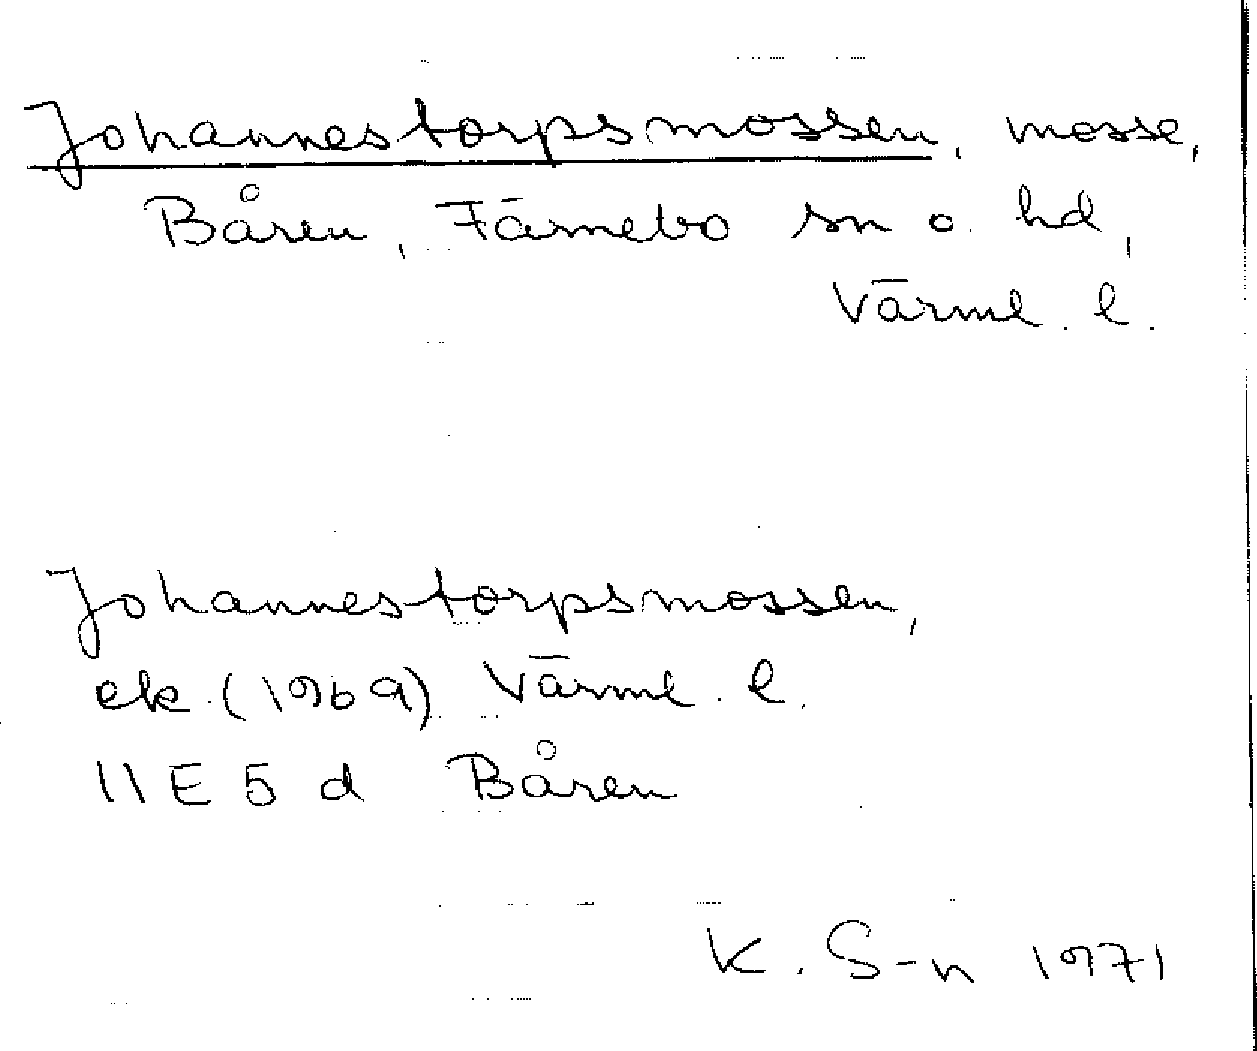 Johannestorpsmossen, mosse,
Båren, Färnebo sn o. hd,
Värml. l.
Johannestorpsmossen,
ek. (1969) Värml. l.
11E 5 d Båren
K. S-n 1971